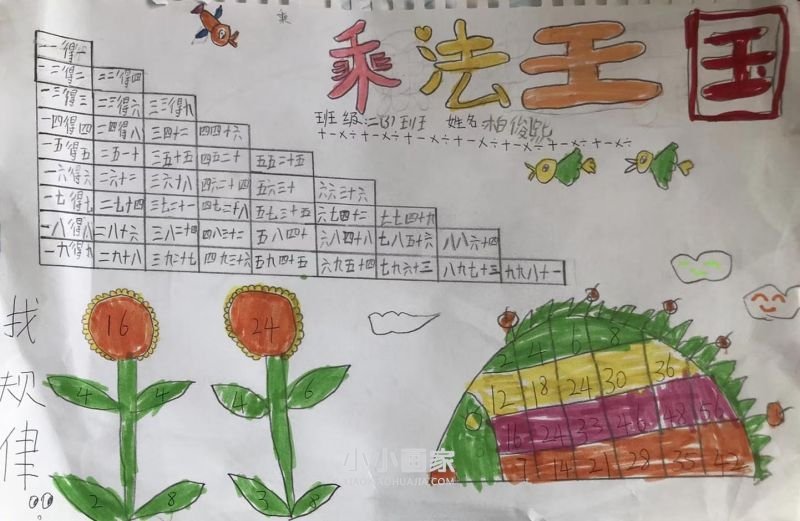 乘
乘法王国
班级:二(3)班 姓名:柏俊熙
+-×÷+-×÷+-×÷+-×÷+-×÷+-×÷
一得一
一二得二 二二得四
一三得三 二三得六 三三得九
一四得四 二四得八 三四十二 四四十六
一五得五 二五一十 三五十五 四五二十 五五二十五
一六得六 二六十二 三六十八 四六二十四 五六三十 六六三十六
一七得七 二七十四 三七二十一 四七二十八 五七三十五 六七四十二 七七四十九
一八得八 二八十六 三八二十四 四八三十二 五八四十 六八四十八 七八五十六 八八六十四
一九得九 二九十八 三九二十七 四九三十六 五九四十五 六九五十四 七九六十三 八九七十三 九九八十一
找规律
16
4 4
2 8
24
4 6
3 8
2 4 6 8
12 18 24 30 36
16 24 33 46 48 56
7 14 21 28 35 42
小小画家
XIAOXIAOHUAJIA.COM